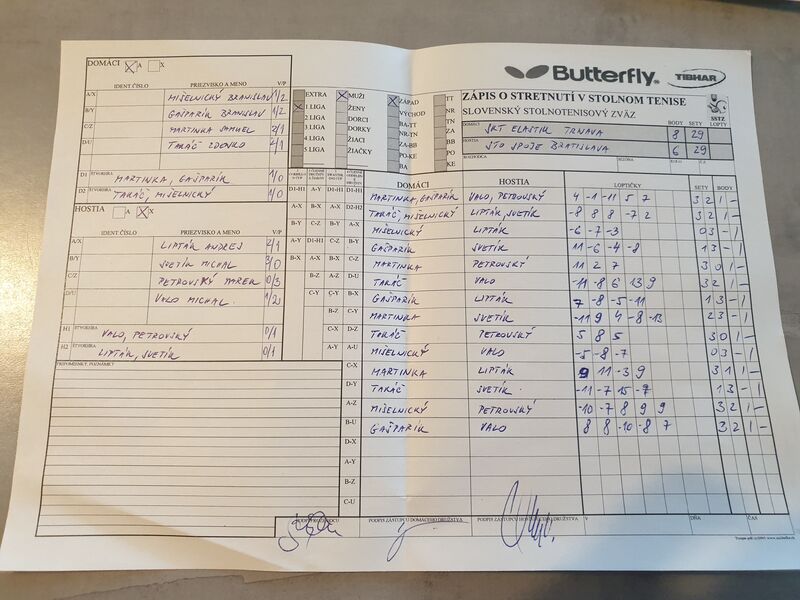 DOMÁCI X A X
IDENT.ČÍSLO PRIEZVISKO A MENO V/P
A/X MIŠELNICKÝ BRANISLAV 1/2
B/Y GAŠPARÍK BRANISLAV 1/2
C/Z MARTINKA SAMUEL 2/1
D/U TAKÁČ ZDENKO 2/1
D1 ŠTVORHRA MARTINKA, GAŠPARÍK 1/0
D2 TAKÁČ, MIŠELNICKÝ 1/0
HOSTIA A X X
IDENT.ČÍSLO PRIEZVISKO A MENO V/P
A/X LIPTÁK ANDREJ 2/1
B/Y SVETÍK MICHAL 3/0
C/Z PETROVSKÝ MAREK 0/3
D/U VALO MICHAL 1/2
H1 ŠTVORHRA VALO, PETROVSKÝ 0/1
H2 ŠTVORHRA LIPTÁK, SVETÍK 0/1
PRIPOMIENKY, POZNÁMKY
EXTRA
1.LIGA
2 LIGA
3 LIGA
4 LIGA
5 LIGA
MUŽI
ŽENY
DORCI
DORKY
ŽIACI
ŽIAČKY
ZÁPAD
VÝCHOD
BA-TT
TN-NR
ZA-BB
PO-KE
BA
TT
NR
TN
ZA
BB
PO
KE
Butterfly TIBHAR
ZÁPIS O STRETNUTÍ V STOLNOM TENISE
SLOVENSKÝ STOLNOTENISOVÝ ZVÄZ
SSTZ
BODY SETY LOPTY
DOMÁCI ŠKT ELASTIK TRNAVA 8 29
HOSTIA STO SPOJE BRATISLAVA 6 29
ROZHODCA SEZÓNA
DOMÁCI HOSTIA LOPTIČKY SETY BODY
MARTINKA, GAŠPARÍK VALO, PETROVSKÝ 4 -1 -11 5 7 3 2 1 -
TAKÁČ, MIŠELNICKÝ LIPTÁK, SVETÍK -8 8 8 -7 2 3 2 1 -
MIŠELNICKÝ LIPTÁK -6 -7 -3 0 3 - 1
GAŠPARÍK SVETÍK 11 -6 -4 -8 1 3 - 1
MARTINKA PETROVSKÝ 11 2 7 3 0 1 -
TAKÁČ VALO -11 -8 6 13 9 3 2 1 -
GAŠPARÍK LIPTÁK 7 -8 -5 -11 1 3 - 1
MARTINKA SVETÍK -11 9 4 -8 -13 2 3 - 1
TAKÁČ PETROVSKÝ 5 8 5 3 0 1 -
MIŠELNICKÝ VALO -5 -8 -7 0 3 - 1
MARTINKA LIPTÁK 9 11 -3 9 3 1 1 -
TAKÁČ SVETÍK -11 -7 15 -7 1 3 - 1
MIŠELNICKÝ PETROVSKÝ -10 -7 8 9 9 3 2 1 -
GAŠPARÍK VALO 8 8 -10 -8 7 3 2 1 -
PODPIS ZÁSTUPCU DOMÁCEHO DRUŽSTVA
PODPIS ZÁSTUPCU HOSŤUJÚCEHO DRUŽSTVA
V DŇA ČAS